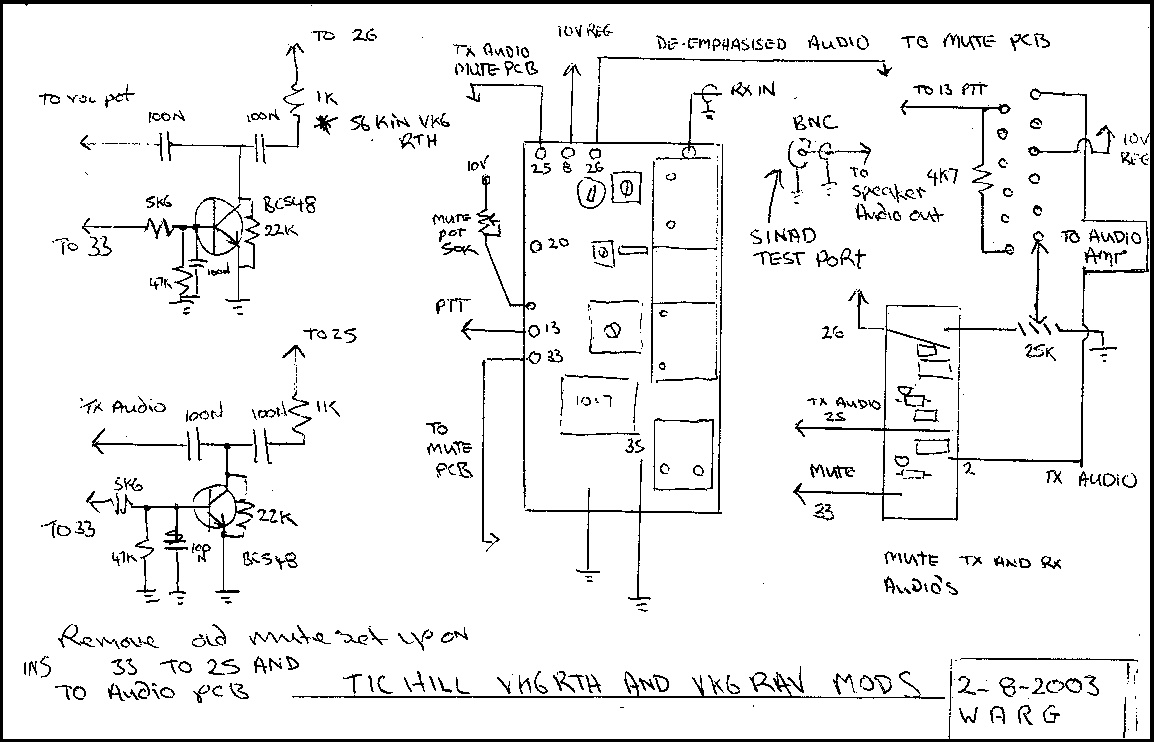 TO 26
TO VOL POT
100N
100N
1K
* 56K IN VK6
RTH
5K6
BC548
22K
TO 33
47K
100N
TO 25
TX Audio
100N
100N
1K
5K6
22K
TO 33
47K
100
N
BC548
TX AUDIO
MUTE PCB
10V REG
DE-EMPHASISED AUDIO TO MUTE PCB
RX IN
25
8
26
10V
MUTE
POT
50K
20
PTT
13
33
10.7
35
TO
MUTE
PCB
BNC
TO
Speaker
Audio out
SINAD
TEST PORT
TO 13 PTT
4K7
10V
REG
TO AUDIO
AMP
26
25K
TX AUDIO
25
MUTE
33
2
TX AUDIO
MUTE TX AND RX
AUDIO'S
Remove old mute set up ON
INS 33 TO 25 AND
TO Audio PCB
TIC HILL VK6RTH AND VK6RAV MODS
2-8-2003
WARG